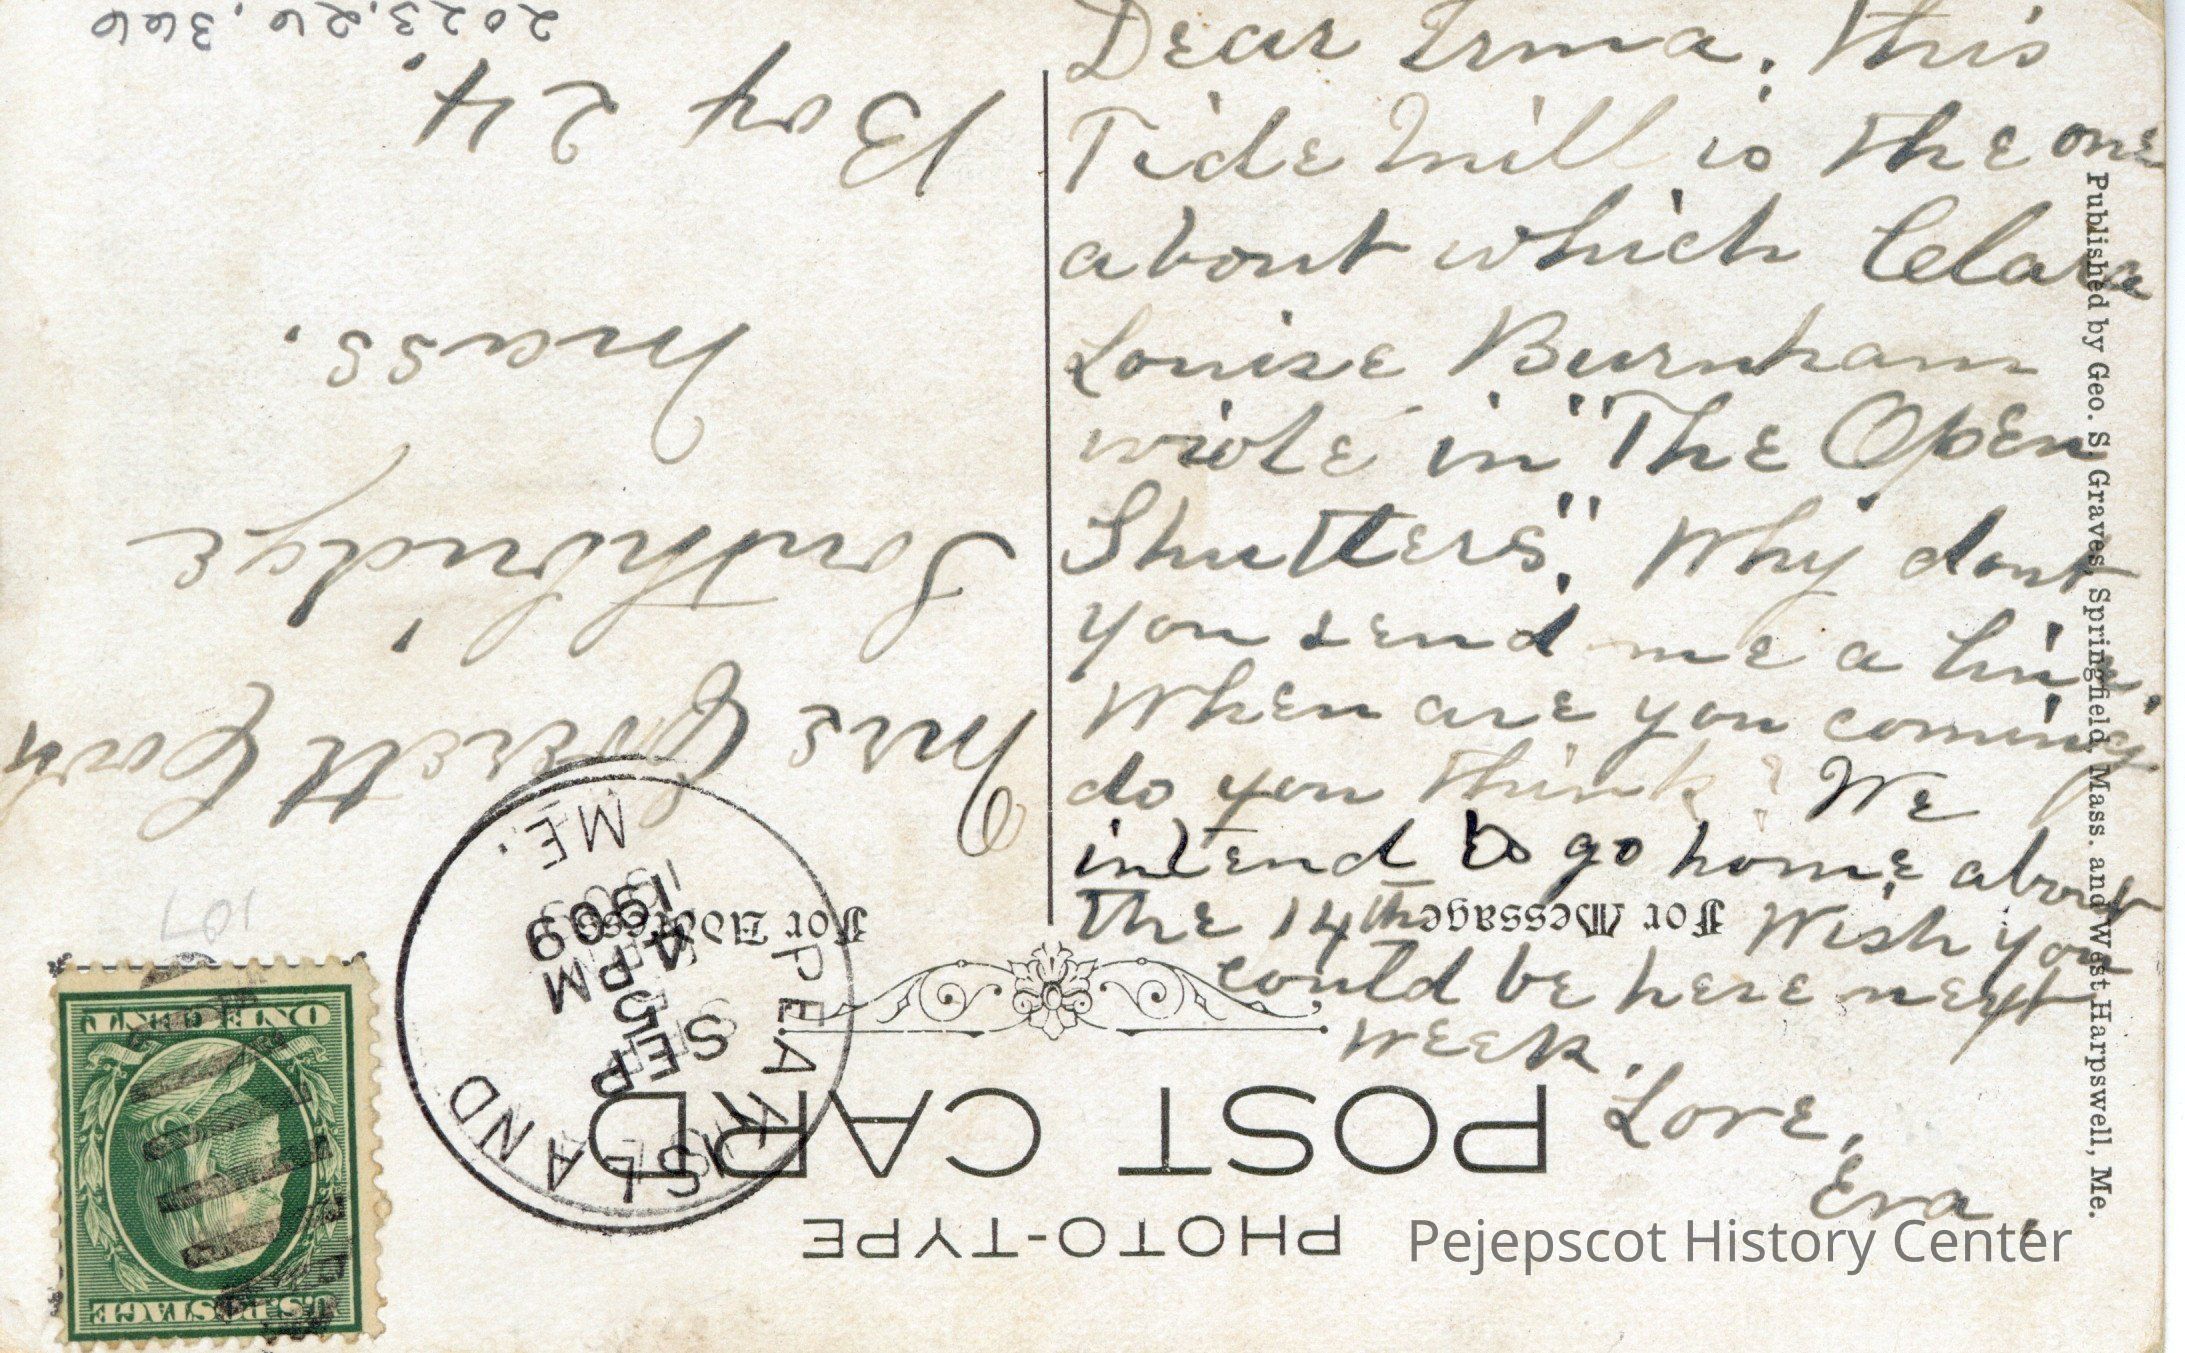 Dear Irma, this
Tide Mill is the one
about which Clara
Louise Burnham
wrote in "The Open
Shutters". Why dont
you send me a line.
When are you coming
do you think? We
intend to go home about
the 14th Wish you
could be here next
week.
Love,
Eva.
Published by Geo. S. Graves, Springfield, Mass. and West Harpswell, Me.
PHOTO-TYPE
POST CARD
For Address
For Message
PEARL ISLAND
ME.
SEP
5
4 PM
1909
M
U.S. POSTAGE
ONE CENT
107
Mrs Everett
Southbridge
Mass.
Box 24.
2023.26.366
Pejepscot History Center